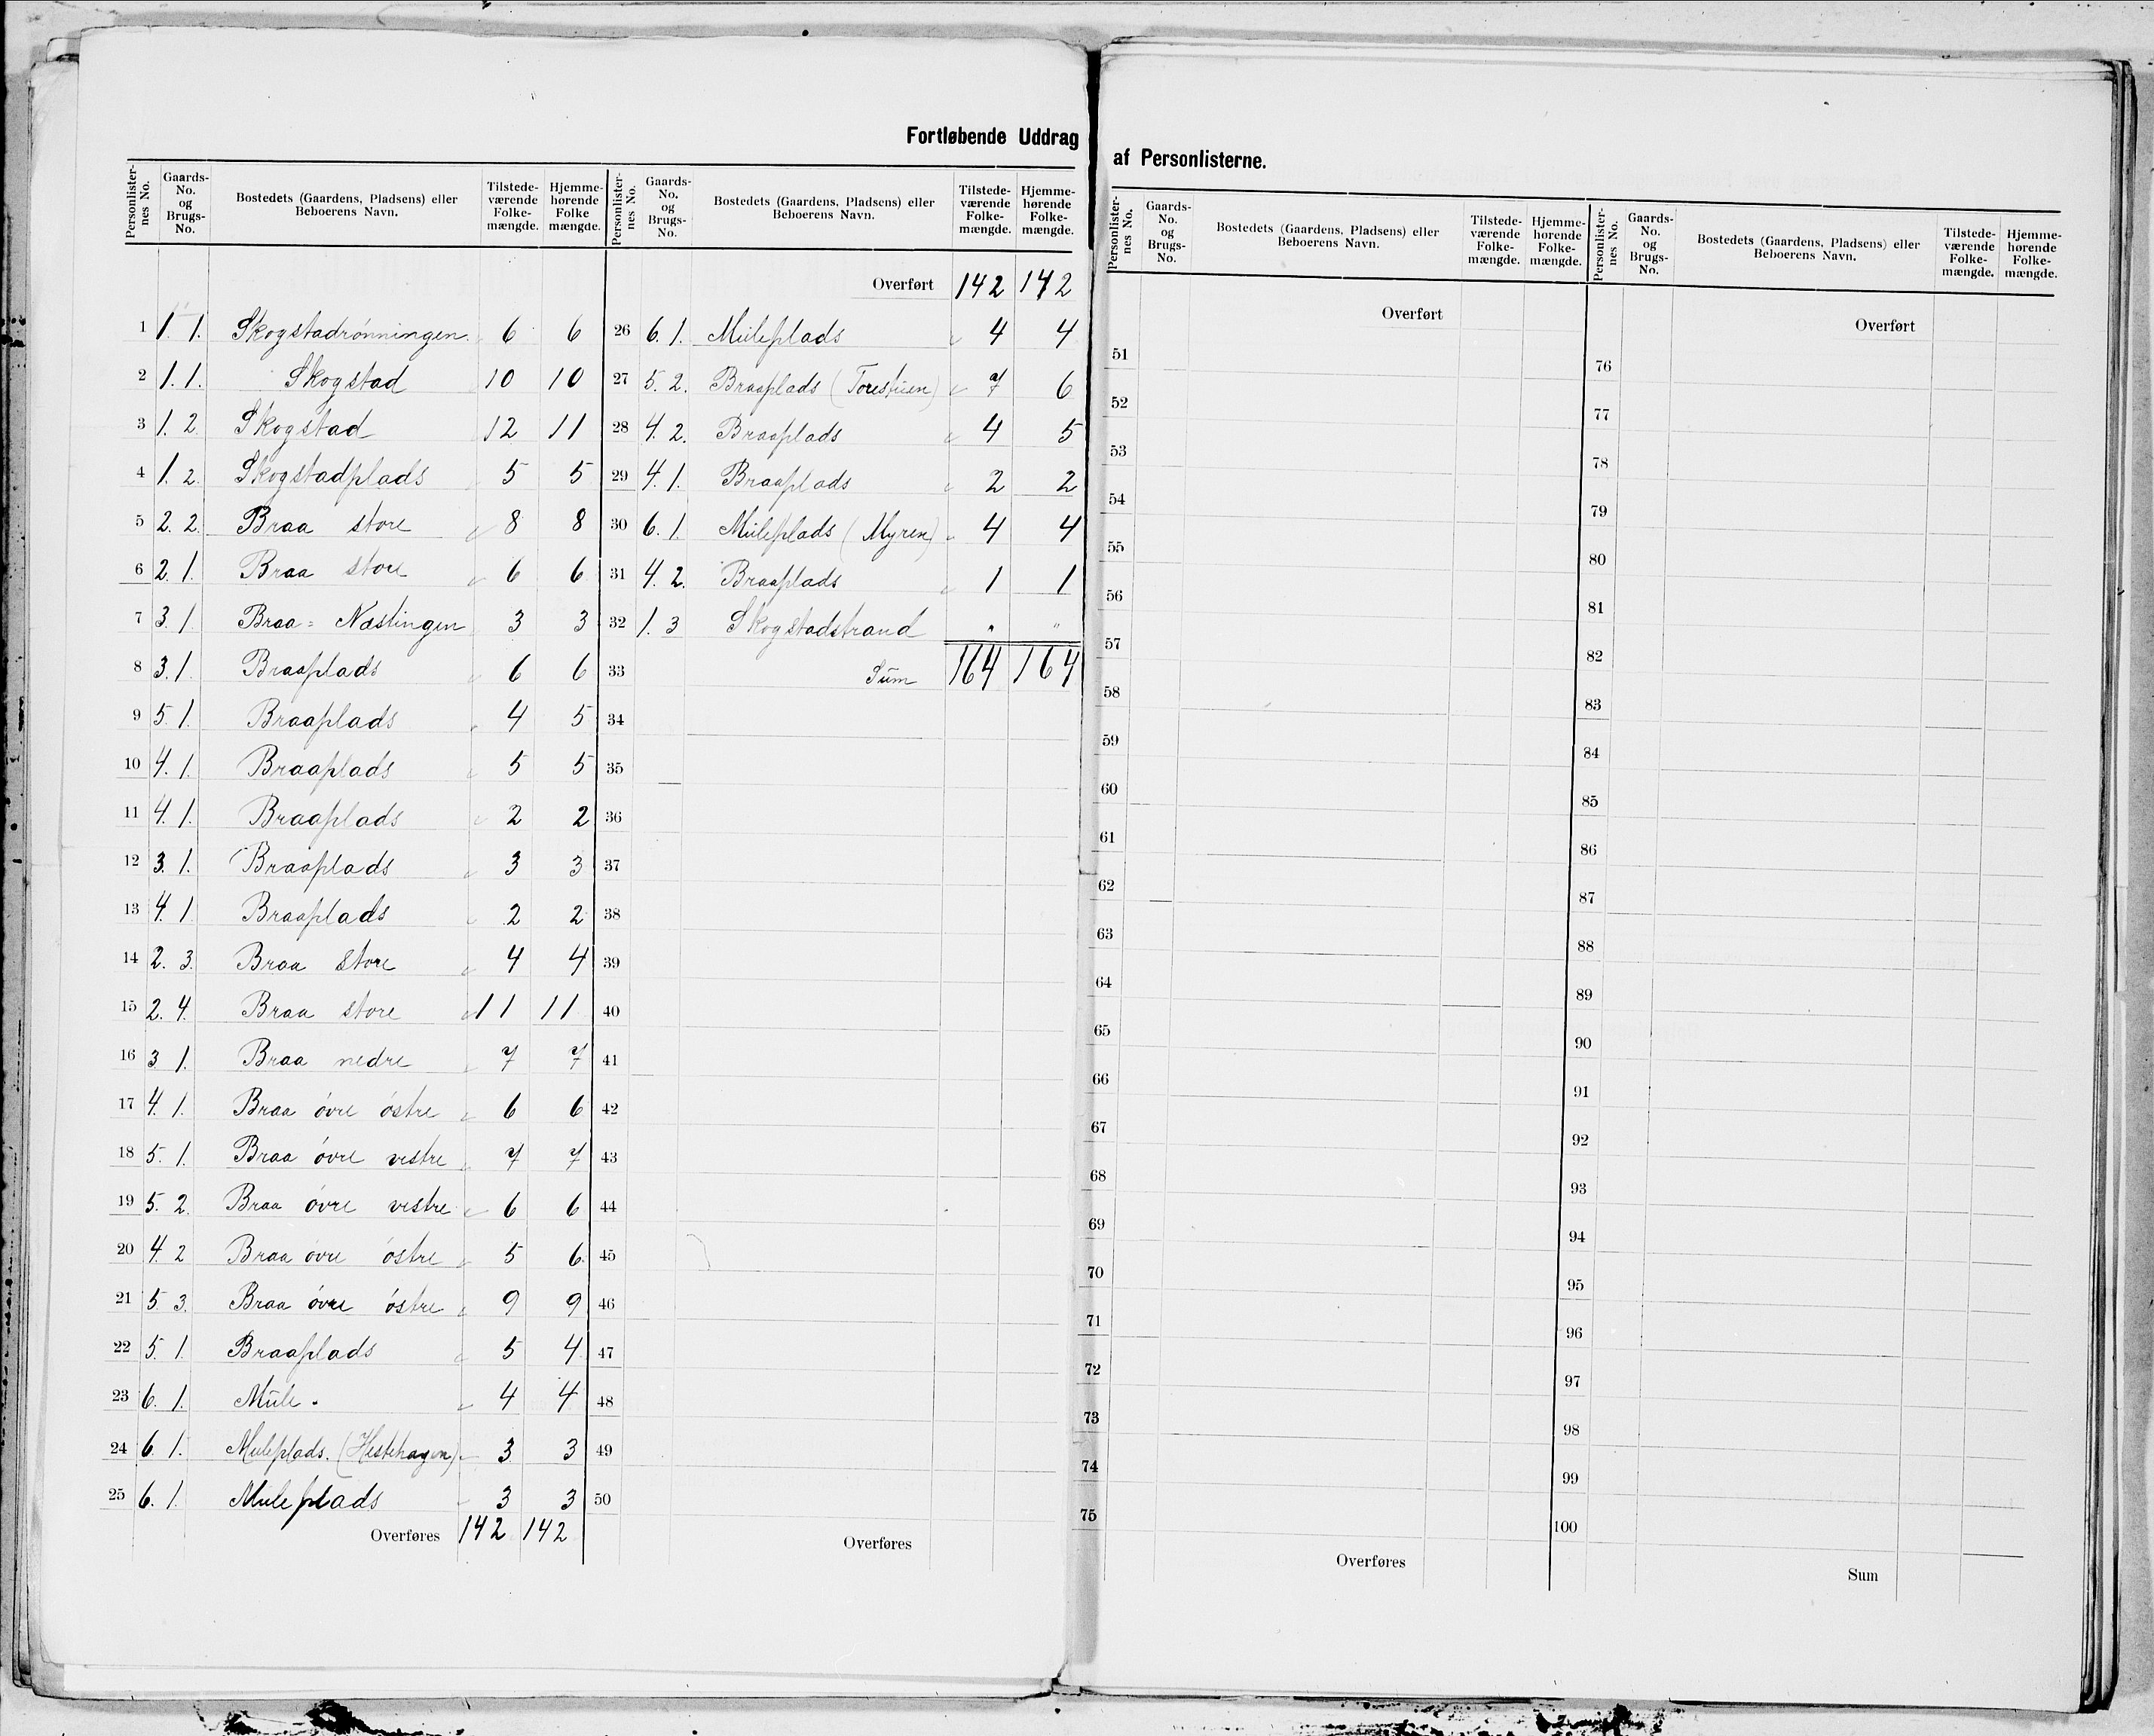 Fortløbende Uddrag af Personlisterne.
Personlisternes No. Gaards-No. og Brugs-No. Bostedets (Gaardens, Pladsens) eller Beboerens Navn. Tilstedeværende Folkemængde. Hjemmehørende Folkemængde.
1 1. 1. Skogstadrønningen 6 6
2 1. 1. Skogstad 10 10
3 1. 2. Skogstad 12 11
4 1. 2. Skogstadplads 5 5
5 2. 2. Braa store 8 8
6 2. 1. Braa store 6 6
7 3. 1. Braa = Næstingen 3 3
8 3. 1. Braaplads 6 6
9 5. 1. Braaplads 4 5
10 4. 1. Braaplads 5 5
11 4. 1. Braaplads 2 2
12 3. 1. Braaplads 3 3
13 4. 1. Braaplads 2 2
14 2. 3. Braa Store 4 4
15 2. 4. Braa store 11 11
16 3 1. Braa nedre 7 7
17 4. 1. Braa óvre óstre 6 6
18 5. 1. Braa óvre vestre 7 7
19 5. 2. Braa óvre vestre 6 6
20 4. 2 Braa óvre óstre 5 6
21 5. 3. Braa óvre óstre 9 9
22 5. 1. Braaplads 5 4
23 6. 1. Mule. 4 4
24 6. 1. Muleplads. (Hestehagen) 3 3
25 6. 1. Muleplads 3 3
Overføres 142 142
Personlisternes No. Gaards-No. og Brugs-No. Bostedets (Gaardens, Pladsens) eller Beboerens Navn. Tilstedeværende Folkemængde. Hjemmehørende Folkemængde.
Overført 142 142
26 6. 1. Muleplads 4 4
27 5. 2. Braaplads (Torestuen) 7 6
28 4. 2. Braaplads 4 5
29 4. 1. Braaplads 2 2
30 6. 1. Muleplads (Myren) 4 4
31 4. 2. Braaplads 1 1
32 1. 3 Skogstadstrand " "
33 Sum 164 164
34
35
36
37
38
39
40
41
42
43
44
45
46
47
48
49
50
Overføres
Personlisternes No. Gaards-No. og Brugs-No. Bostedets (Gaardens, Pladsens) eller Beboerens Navn. Tilstedeværende Folkemængde. Hjemmehørende Folkemængde.
Overført
51
52
53
54
55
56
57
58
59
60
61
62
63
64
65
66
67
68
69
70
71
72
73
74
75
Overføres
Personlisternes No. Gaards-No. og Brugs-No. Bostedets (Gaardens, Pladsens) eller Beboerens Navn. Tilstedeværende Folkemængde. Hjemmehørende Folkemængde.
Overført
76
77
78
79
80
81
82
83
84
85
86
87
88
89
90
91
92
93
94
95
96
97
98
99
100
Sum